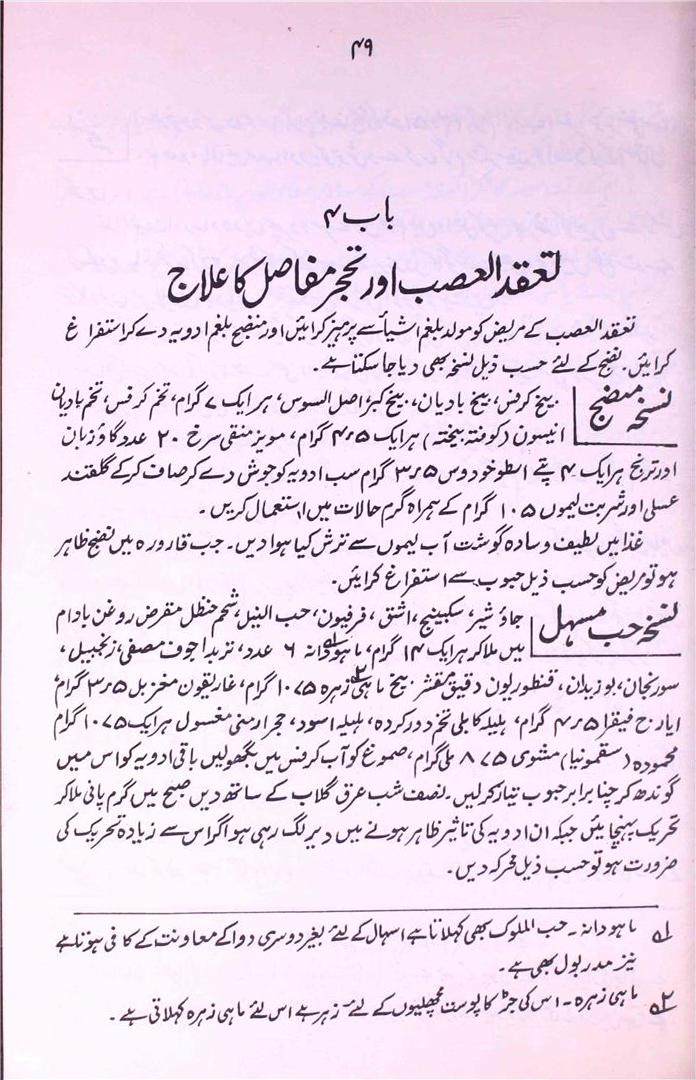 ۴۹
باب ۴
تعقد العصب اور تحجر مفاصل کا علاج
تعقد العصب کے مریض کو مولد بلغم اشیأ سے پرہیز کرائیں اور منضج بلغم ادویہ دے کر استفراغ
کرائیں۔ نضج کے لئے حسب ذیل نسخہ بھی دیا جا سکتا ہے۔
نسخہ منضج
بیخ کرفس، بیخ بادیان، بیخ کبر، اصل السوس، ہر ایک ۷ گرام، تخم کرفس، تخم بادیان
انیسون (کوفتہ بیختہ) ہر ایک ۴٫۵ گرام، مویز منقی سرخ ۲۰ عدد گاؤ زبان
اور ترنج ہر ایک ۴ پتے اسطوخودوس ۳٫۵ گرام سب ادویہ کو جوش دے کر صاف کر کے گلقند
عسلی اور شربت لیموں ۱۰۵ گرام کے ہمراہ گرم حالات میں استعمال کریں۔
غذا میں لطیف و سادہ گوشت آب لیموں سے ترش کیا ہوا دیں۔ جب قارورہ میں نضج ظاہر
ہو تو مریض کو حسب ذیل حبوب سے استفراغ کرائیں۔
نسخہ حب مسہل
جاؤ شیر، سکبینج، اشق، فرفیون، حب النیل، شحم حنظل منقرض روغن بادام
میں ملا کر ہر ایک ۱۴ گرام، ماہودانہ۱ ۶ عدد، تربد اجوف مصفی، زنجبیل،
سورنجان، بوزیدان، قنطوریون دقیق مقشر بیخ ماہی زہرہ۲ ۱۰٫۷۵ گرام، غاریقون مغربل ۳٫۵ گرام
ایارج فیقرا ۴٫۵ گرام، ہلیلہ کابلی تخم دور کردہ، ہلیلہ اسود، حجر ارمنی مغسول ہر ایک ۱۰٫۷۵ گرام
محمودہ (سقمونیا) مشوی ۸۷۵ ملی گرام، صموغ کو آب کرفس میں بھگولیں باقی ادویہ کو اس میں
گوندھ کر چنا برابر حبوب تیار کرلیں۔ نصف شب عرق گلاب کے ساتھ دیں صبح میں گرم پانی ملا کر
تحریک پہنچائیں جبکہ ان ادویہ کی تاثیر ظاہر ہونے میں دیر لگ رہی ہو اگر اس سے زیادہ تحریک کی
ضرورت ہو تو حسب ذیل محرکہ دیں۔
۱ ماہودانہ۔ حب الملوک بھی کہلاتا ہے اسہال کے لئے بغیر دوسری دوا کے معاونت کے کافی ہوتا ہے
نیز مدر بول بھی ہے۔
۲ ماہی زہرہ۔ اس کی جڑ کا پوست مچھلیوں کے لئے زہر ہے اس لئے ماہی زہرہ کہلاتی ہے۔